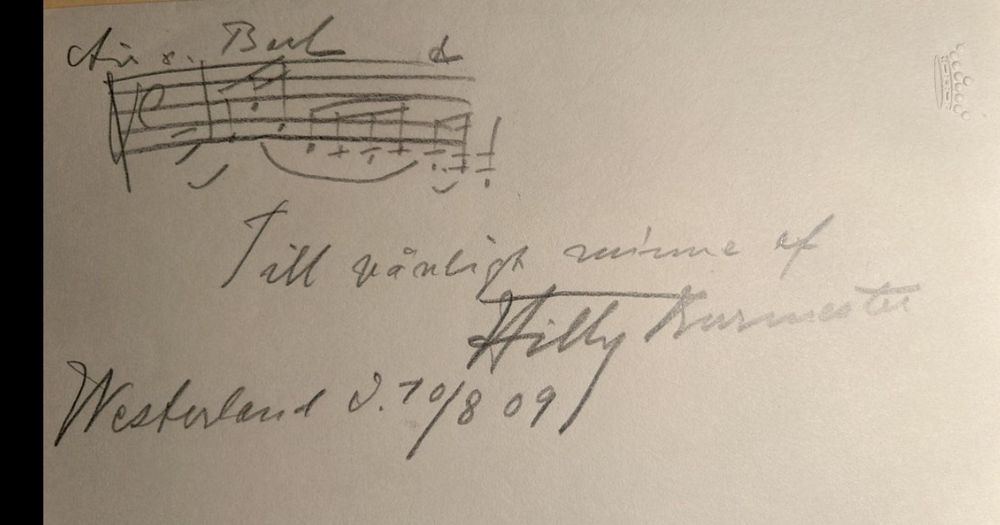 Air v. Bach
Till vänligt minne af
Willy Burmester
Westerland d. 10/8 09